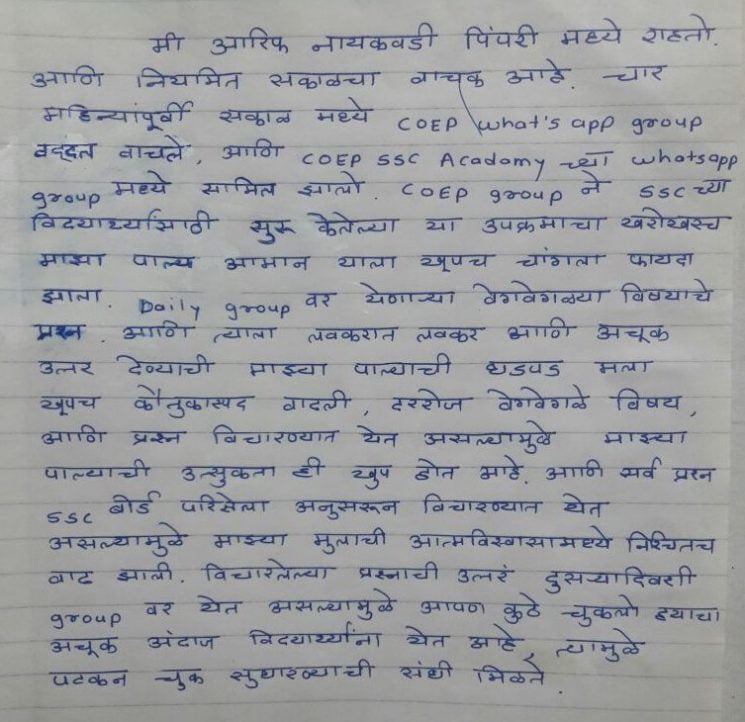 मी आरिफ नायकवडी पिंपरी मध्ये राहतो.
आणि नियमित सकाळचा वाचक आहे. चार
महिन्यांपूर्वी सकाळ मध्ये COEP What's app group
बद्दल वाचले, आणि COEP SSC Academy च्या whatsapp
group मध्ये सामिल झालो. COEP group ने SSC च्या
विद्यार्थ्यांसाठी सुरू केलेल्या या उपक्रमाचा खरोखरच
माझा पाल्य आमान याला खूपच चांगला फायदा
झाला. Daily group वर येणाऱ्या वेगवेगळ्या विषयाचे
प्रश्न. आणि त्याला लवकरात लवकर आणि अचूक
उत्तर देण्याची माझ्या पाल्याची धडपड मला
खूपच कौतुकास्पद वाटली, दररोज वेगवेगळे विषय,
आणि प्रश्न विचारण्यात येत असल्यामुळे माझ्या
पाल्याची उत्सुकता ही खुप होत आहे. आणि सर्व प्रश्न
SSC बोर्ड परिक्षेला अनुसरून विचारण्यात येत
असल्यामुळे माझ्या मुलाची आत्मविश्वासामध्ये निश्चितच
वाढ झाली. विचारलेल्या प्रश्नाची उत्तरं दुसऱ्यादिवशी
group वर येत असल्यामुळे आपण कुठे चुकलो ह्याचा
अचूक अंदाज विद्यार्थ्यांना येत आहे, त्यामुळे
पटकन चुक सुधारण्याची संधी मिळते.